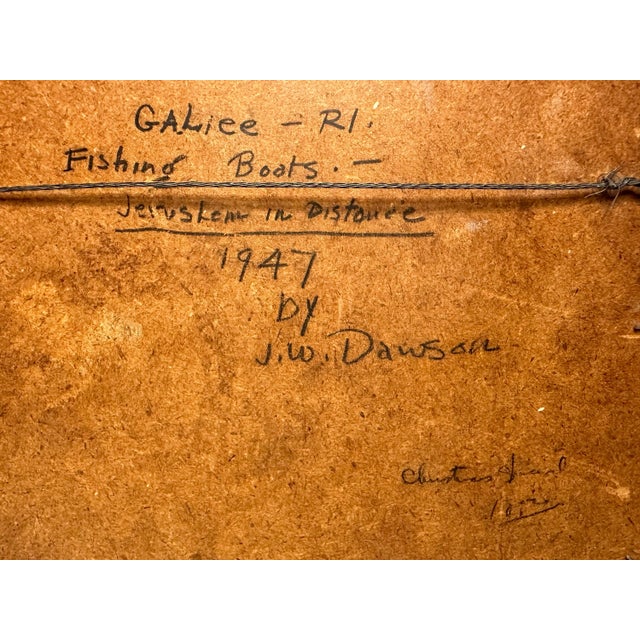 GALiee - RI.
Fishing Boats. -
Jerusalem in Distance
1947
by
J.W. Dawson
Christmas